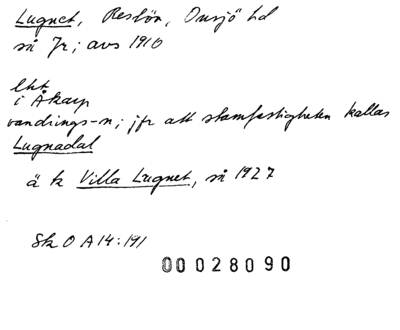 Lugnet, Reslöv, Onsjö hd
så Jr; avs 1910
lht
i Åkarp
vandrings-n; jfr att stamfastigheten kallas
Lugnadal
ä k Villa Lugnet, så 1927
Sk O A14:191
00028090